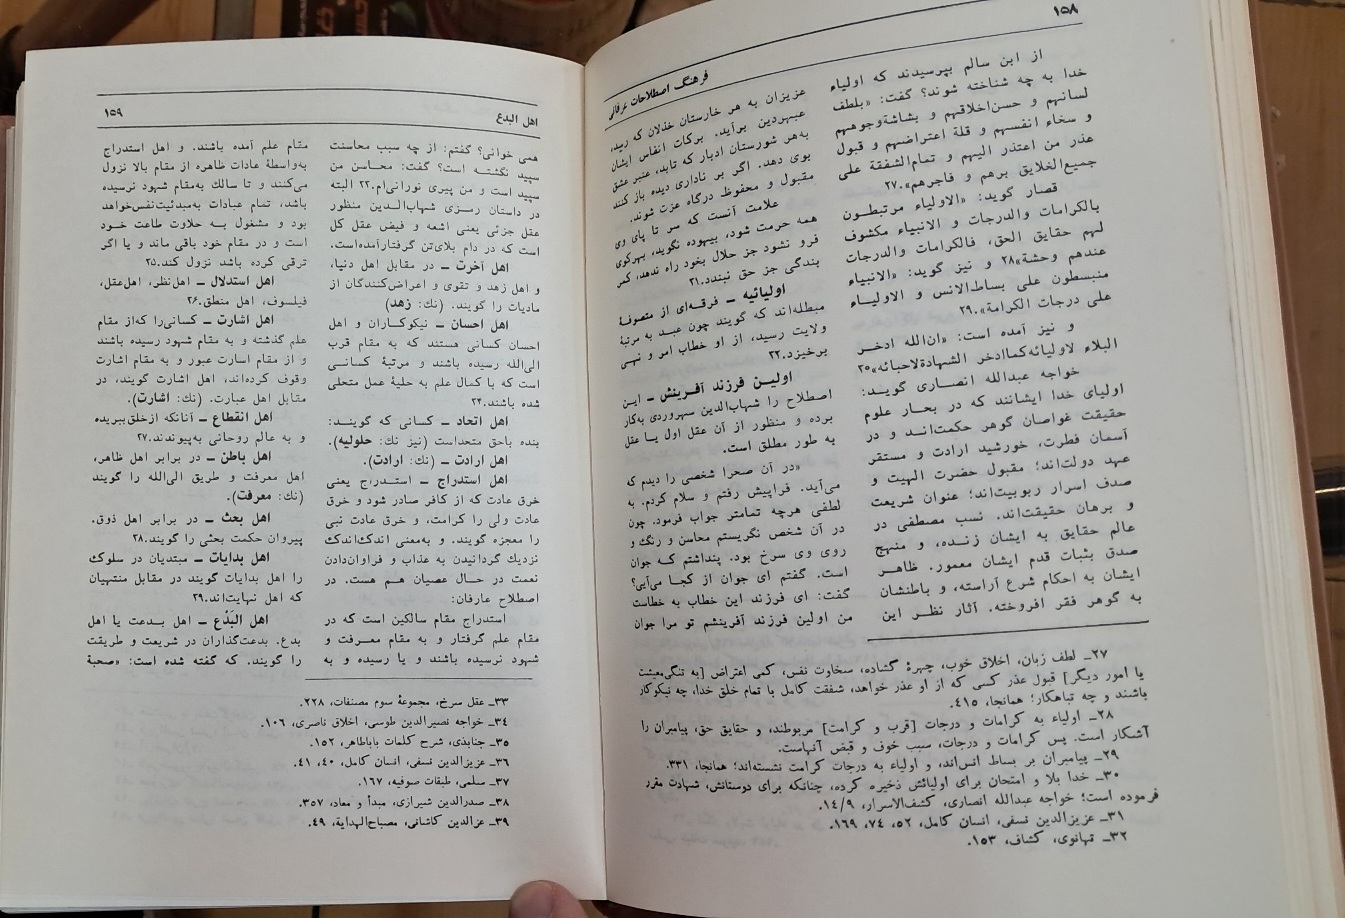 ۱۵۸
فرهنگ اصطلاحات عرفانی
از ابن سالم بپرسیدند که اولیاء
خدا به چه شناخته شوند؟ گفت: «بلطف
لسانهم و حسن‌اخلاقهم و بشاشةوجوههم
و سخاء انفسهم و قلة اعتراضهم و قبول
عذر من اعتذر الیهم و تمام‌الشفقة علی
جمیع‌الخلایق برهم و فاجرهم».۲۷
قصار گوید: «الاولیاء مرتبطون
بالکرامات والدرجات و الانبیاء مکشوف
لهم حقایق الحق، فالکرامات والدرجات
عندهم وحشة»۲۸ و نیز گوید: «الانبیاء
منبسطون علی بساط‌الانس و الاولیاء
علی درجات الکرامة».۲۹
و نیز آمده است: «ان‌الله ادخر
البلاء لاولیائه‌کماادخر الشهادةلاحبائه»۳۰
خواجه عبدالله انصاری گوید:
اولیای خدا ایشانند که در بحار علوم
حقیقت غواصان گوهر حکمت‌اند و در
آسمان فطرت، خورشید ارادت و مستقر
عهد دولت‌اند؛ مقبول حضرت الهیت و
صدف اسرار ربوبیت‌اند؛ عنوان شریعت
و برهان حقیقت‌اند. نسب مصطفی در
عالم حقایق به ایشان زنده، و منهج
صدق بثبات قدم ایشان معمور. ظاهر
ایشان به احکام شرع آراسته، و باطنشان
به گوهر فقر افروخته. آثار نظر این
عزیزان به هر خارستان خذلان که رسد،
عبهردین برآید. برکات انفاس ایشان
به‌هر شورستان ادبار که تابد، عنبر عشق
بوی دهد. اگر بر ناداری دیده باز کنند
مقبول و محفوظ درگاه عزت شوند.
علامت آنست که سر تا پای وی
همه حرمت شود، بیهوده نگوید، بهرکوی
فرو نشود جز حلال بخود راه ندهد، کمر
بندگی جز حق نبندد.۳۱
اولیائیه ــ فرقه‌ای از متصوفهٔ
مبطله‌اند که گویند چون عبد به مرتبهٔ
ولایت رسید، از او خطاب امر و نهی
برخیزد.۳۲
اولین فرزند آفرینش ــ این
اصطلاح را شهاب‌الدین سهروردی به‌کار
برده و منظور از آن عقل اول یا عقل
به طور مطلق است.
«در آن صحرا شخصی را دیدم که
می‌آید. فراپیش رفتم و سلام کردم. به
لطفی هرچه تمامتر جواب فرمود. چون
در آن شخص نگریستم محاسن و رنگ و
روی وی سرخ بود. پنداشتم که جوان
است. گفتم ای جوان از کجا می‌آیی؟
گفت: ای فرزند این خطاب به خطاست
من اولین فرزند آفرینشم تو مرا جوان
۲۷ــ لطف زبان، اخلاق خوب، چهرهٔ گشاده، سخاوت نفس، کمی اعتراض [به تنگی‌معیشت
یا امور دیگر] قبول عذر کسی که از او عذر خواهد، شفقت کامل با تمام خلق خدا، چه نیکوکار
باشند و چه تباهکار؛ همانجا، ۴۱۵.
۲۸ــ اولیاء به کرامات و درجات [قرب و کرامت] مربوطند، و حقایق حق، پیامبران را
آشکار است. پس کرامات و درجات، سبب خوف و قبض آنهاست.
۲۹ــ پیامبران بر بساط انس‌اند، و اولیاء به درجات کرامت نشسته‌اند؛ همانجا، ۳۳۱.
۳۰ــ خدا بلا و امتحان برای اولیائش ذخیره کرده، چنانکه برای دوستانش، شهادت مقرر
فرموده است؛ خواجه عبدالله انصاری، کشف‌الاسرار، ۱۴/۹.
۳۱ــ عزیزالدین نسفی، انسان کامل، ۵۲، ۷۴، ۱۶۹.
۳۲ــ تهانوی، کشاف، ۱۵۳.
اهل البدع
۱۵۹
همی خوانی؟ گفتم: از چه سبب محاسنت
سپید نگشته است؟ گفت: محاسن من
سپید است و من پیری نورانی‌ام.۳۳ البته
در داستان رمزی شهاب‌الدین منظور
عقل جزئی یعنی اشعه و فیض عقل کل
است که در دام بلای‌تن گرفتارآمده‌است.
اهل آخرت ــ در مقابل اهل دنیا،
و اهل زهد و تقوی و اعراض‌کنندگان از
مادیات را گویند. (نك: زهد)
اهل احسان ــ نیکوکاران و اهل
احسان کسانی هستند که به مقام قرب
الی‌الله رسیده باشند و مرتبهٔ کسانی
است که با کمال علم به حلیهٔ عمل متحلی
شده باشند.۳۴
اهل اتحاد ــ کسانی که گویند:
بنده باحق متحداست (نیز نك: حلولیه).
اهل ارادت ــ (نك: ارادت).
اهل استدراج ــ استدراج یعنی
خرق عادت که از کافر صادر شود و خرق
عادت ولی را کرامت، و خرق عادت نبی
را معجزه گویند. و به‌معنی اندك‌اندك
نزدیك گردانیدن به عذاب و فراوان‌دادن
نعمت در حال عصیان هم هست. در
اصطلاح عارفان:
استدراج مقام سالکین است که در
مقام علم گرفتار و به مقام معرفت و
شهود نرسیده باشند و یا رسیده و به
مقام علم آمده باشند. و اهل استدراج
به‌واسطهٔ عادات ظاهره از مقام بالا نزول
می‌کنند و تا سالك به‌مقام شهود نرسیده
باشد، تمام عبادات به‌مبدئیت‌نفس‌خواهد
بود و مشغول به حلاوت طاعت خود
است و در مقام خود باقی ماند و یا اگر
ترقی کرده باشد نزول کند.۳۵
اهل استدلال ــ اهل‌نظر، اهل‌عقل،
فیلسوف، اهل منطق.۳۶
اهل اشارت ــ کسانی‌را که‌از مقام
علم گذشته و به مقام شهود رسیده باشند
و از مقام اسارت عبور و به مقام اشارت
وقوف کرده‌اند، اهل اشارت گویند، در
مقابل اهل عبارت. (نك: اشارت).
اهل انقطاع ــ آنانکه ازخلق‌ببریده
و به عالم روحانی به‌پیوندند.۳۷
اهل باطن ــ در برابر اهل ظاهر،
اهل معرفت و طریق الی‌الله را گویند
(نك: معرفت).
اهل بحث ــ در برابر اهل ذوق.
پیروان حکمت بحثی را گویند.۳۸
اهل بدایات ــ مبتدیان در سلوك
را اهل بدایات گویند در مقابل منتهیان
که اهل نهایت‌اند.۳۹
اهل البِدَع ــ اهل بدعت یا اهل
بدع. بدعت‌گذاران در شریعت و طریقت
را گویند. که گفته شده است: «صحبة
۳۳ــ عقل سرخ، مجموعهٔ سوم مصنفات، ۲۲۸.
۳۴ــ خواجه نصیرالدین طوسی، اخلاق ناصری، ۱۰۶.
۳۵ــ جنابذی، شرح کلمات باباطاهر، ۱۵۲.
۳۶ــ عزیزالدین نسفی، انسان کامل، ۴۰، ۴۱.
۳۷ــ سلمی، طبقات صوفیه، ۱۶۷.
۳۸ــ صدرالدین شیرازی، مبدأ و معاد، ۳۵۷.
۳۹ــ عزالدین کاشانی، مصباح‌الهدایة، ۴۹.